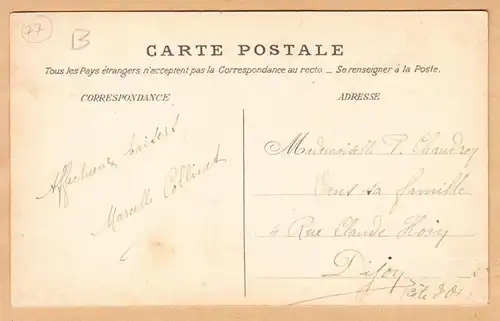 77
B
CARTE POSTALE
Tous les Pays étrangers n'acceptent pas la Correspondance au recto _ Se renseigner à la Poste.
CORRESPONDANCE
ADRESSE
Affectueux baisers
Marcelle Collinet
Mademoiselle P. Chaudroy
sa famille
4 Rue Claude
Dijon
(Côte d'Or)